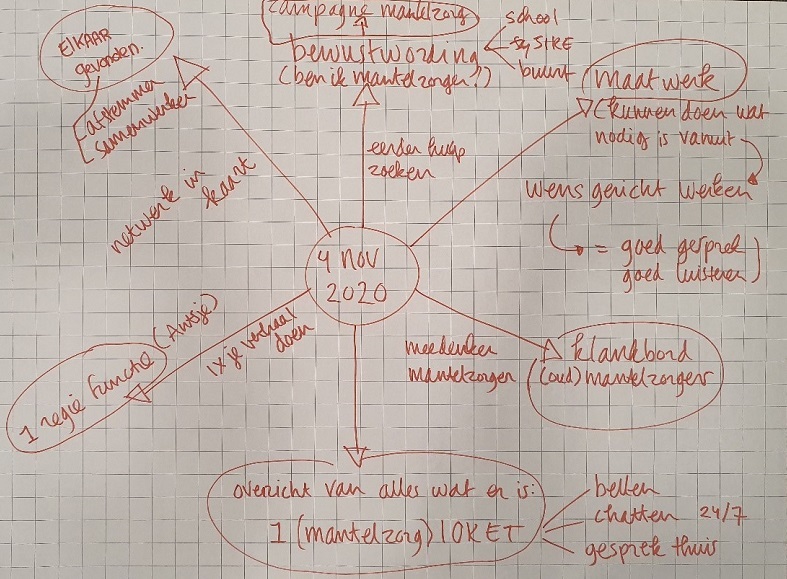 campagne mantelzorg
bewustwording
(ben ik mantelzorger?)
school
buurt
ElKAAR
gevonden.
afstemmen
samenwerken
netwerk in
kaart
eerder hulp
zoeken
maatwerk
(kunnen doen wat
nodig is vanuit
wens gericht werken
= goed gesprek
goed luisteren)
4 nov
2020
1 regie functie (Antsje)
1x je verhaal
doen
meedenken
mantelzorgen
klankbord
(oud) mantelzorgers
overzicht van alles wat er is:
1 (mantelzorg) lOKET
bellen
chatten 24/7
gesprek thuis